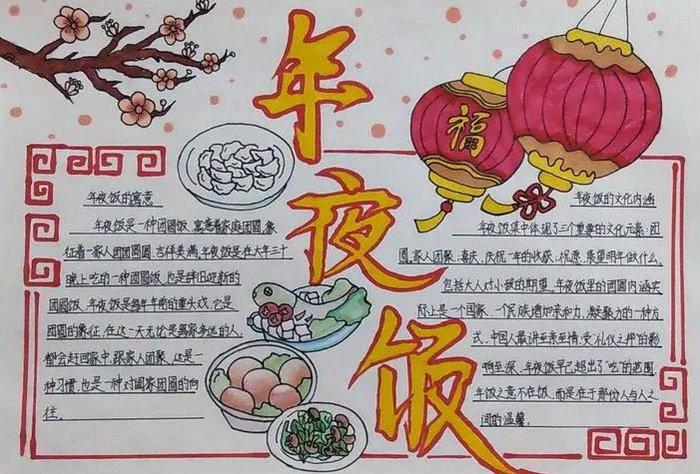 年夜饭
福
年夜饭的寓意
年夜饭是一种团圆饭,寓意着家庭团圆,象
征着一家人团团圆圆,吉祥美满,年夜饭是在大年三十
晚上吃的一种团圆饭,也是辞旧迎新的
团圆饭,年夜饭是每年年前的重头戏,它是
团圆的象征,在这一天无论是离家多远的人,
都会赶回家中,跟家人团聚,这是一
种习惯,也是一种对阖家团圆的向
往。
年夜饭的文化内涵
年夜饭集中体现了三个重要的文化元素:团
圆,家人团聚;喜庆,庆祝一年的收获;祝愿,展望明年做什么,
包括大人对小孩的期望,年夜饭里的团圆内涵实
际上是一个国家、一个民族增加亲和力,凝聚力的一种方
式,中国人最讲至亲至情,受“礼仪之邦”的影
响至深,年夜饭早已超出了“吃”的范围,
年饭之意不在饭,而是在于那份人与人之
间的温馨。